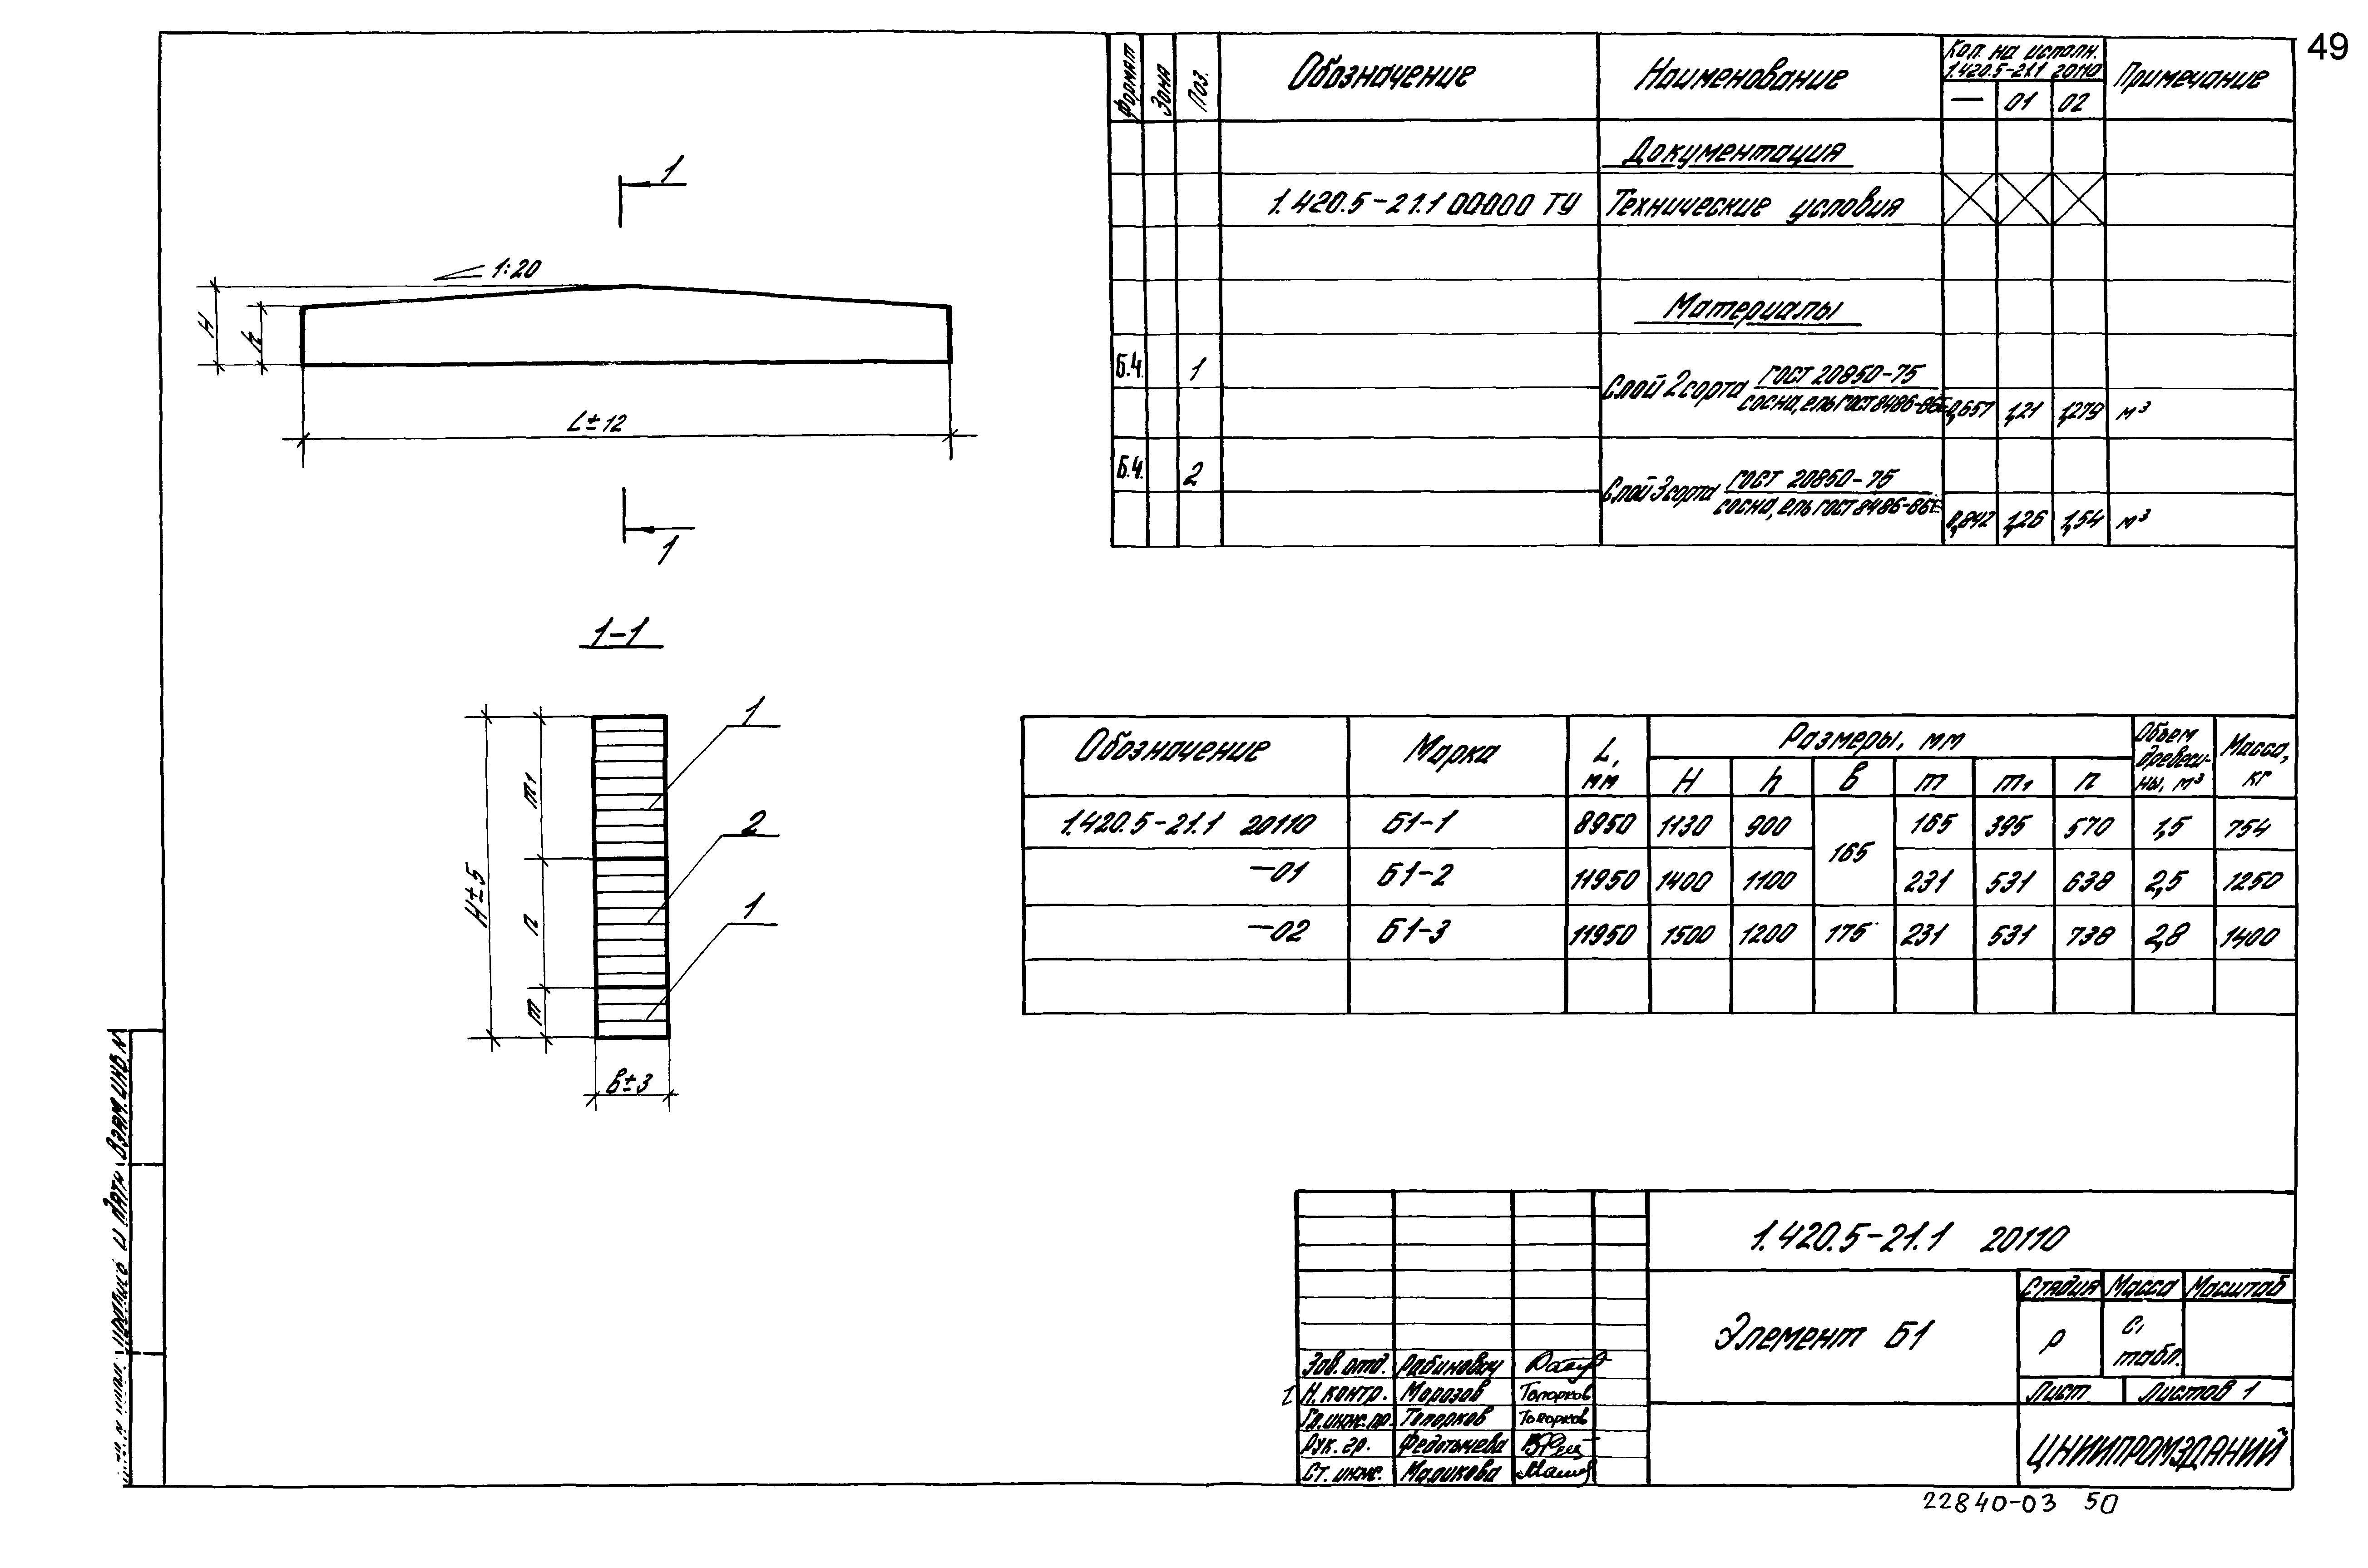 49
Формат Зона Поз. Обозначение Наименование Кол. на исполн. 1.420.5-21.1 20110 Примечание
— 01 02
Документация
1.420.5-21.1 00000 ТУ Технические условия
Материалы
Б.Ч. 1 Слой 2 сорта ГОСТ 20850-75
сосна, ель ГОСТ 8486-86Е 0,657 1,21 1,279 м³
Б.Ч. 2 Слой 3 сорта ГОСТ 20850-75
сосна, ель ГОСТ 8486-86Е 0,842 1,26 1,54 м³
1
1:20
H
h
L±12
1
1-1
1
2
1
m1
n
m
H±5
в±3
Обозначение Марка L, мм Размеры, мм Объем древеси-ны, м³ Масса, кг
H h в m m1 n
1.420.5-21.1 20110 Б1-1 8950 1130 900 165 165 395 570 1,5 754
-01 Б1-2 11950 1400 1100 231 531 638 2,5 1250
-02 Б1-3 11950 1500 1200 175 231 531 738 2,8 1400
1.420.5-21.1 20110
Элемент Б1
Стадия Масса Масштаб
Р См. табл.
Лист Листов 1
ЦНИИПРОМЗДАНИЙ
Зав. отд. Рабинович
Н. контр. Морозов Топорков
Гл. инж. пр. Топорков Топорков
Рук. гр. Федотычева
Ст. инж. Маликова
Взам. инв. N
22840-03 50